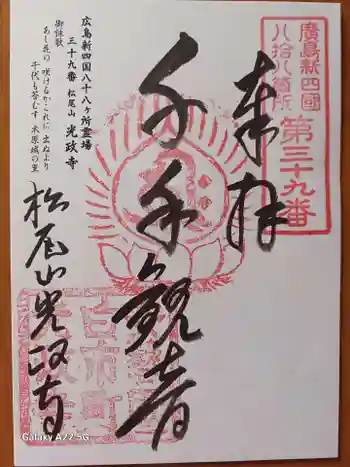 廣島新四國
八拾八箇所
第三十九番
奉拝
千手観音
広島新四国八十八ヶ所霊場
三十九番 松尾山 光政寺
御詠歌
あし花の 咲けるかこれに 出ぬより
千代も苔むす 木原城の里
松尾山光政寺
Galaxy A22 5G